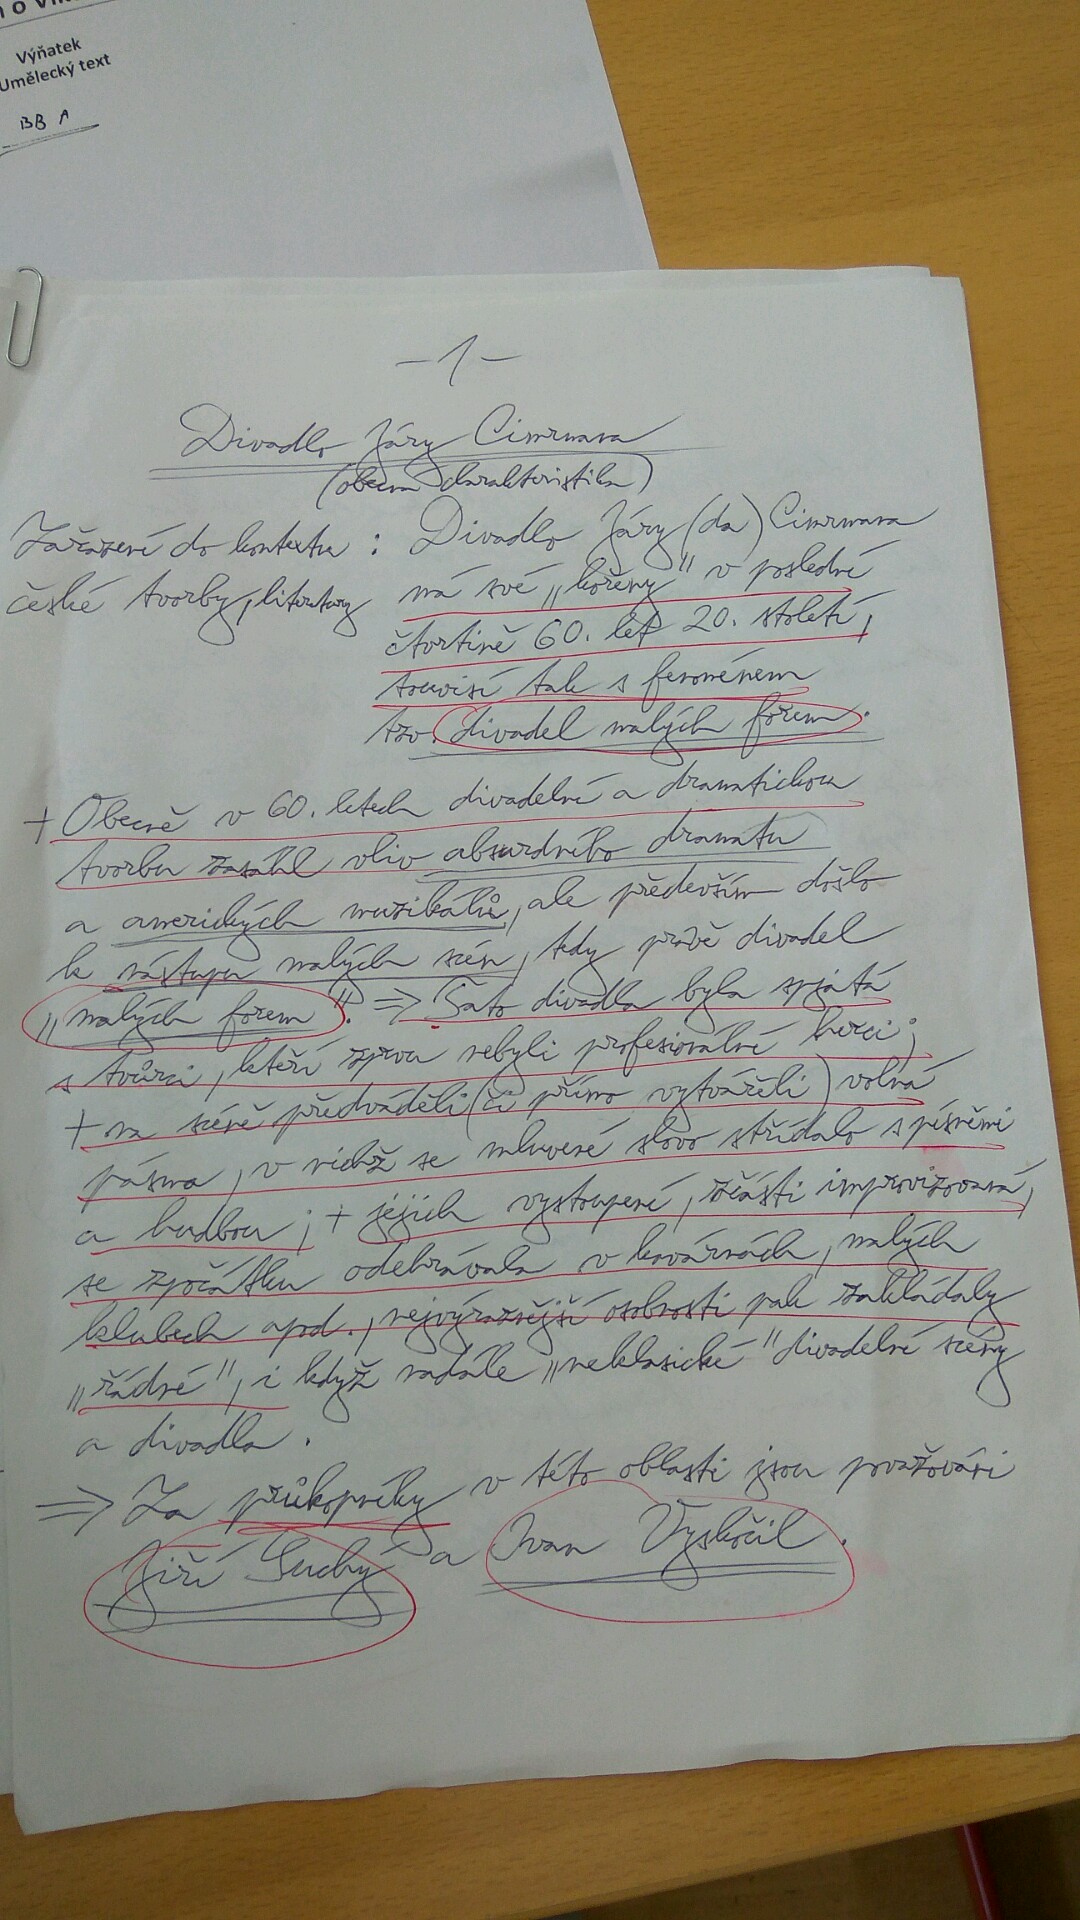 Výňatek
Umělecký text
BB A
-1-
Divadlo Járy Cimrmana
(obecná charakteristika)
Zařazení do kontextu : Divadlo Járy (da) Cimrmana
české tvorby, literatury má své „kořeny" v poslední
čtvrtině 60. let 20. století,
souvisí tak s fenoménem
tzv. divadel malých forem.
+ Obecně v 60. letech divadelní a dramatickou
tvorbu zasáhl vliv absurdního dramatu
a amerických muzikálů, ale především došlo
k nástupu malých scén, tedy právě divadel
„malých forem". => Tato divadla byla spjatá
s tvůrci, kteří zprvu nebyli profesionální herci;
+ na scéně předváděli (či přímo vytvářeli) volná
pásma, v nichž se mluvené slovo střídalo s písněmi
a hudbou; + jejich vystoupení, zčásti improvizovaná,
se zpočátku odehrávala v kavárnách, malých
klubech apd., nejvýraznější osobnosti pak zakládaly
„řádné", i když nadále „neklasické" divadelní scény
a divadla.
=> Za průkopníky v této oblasti jsou považováni
Jiří Suchý a Ivan Vyskočil.